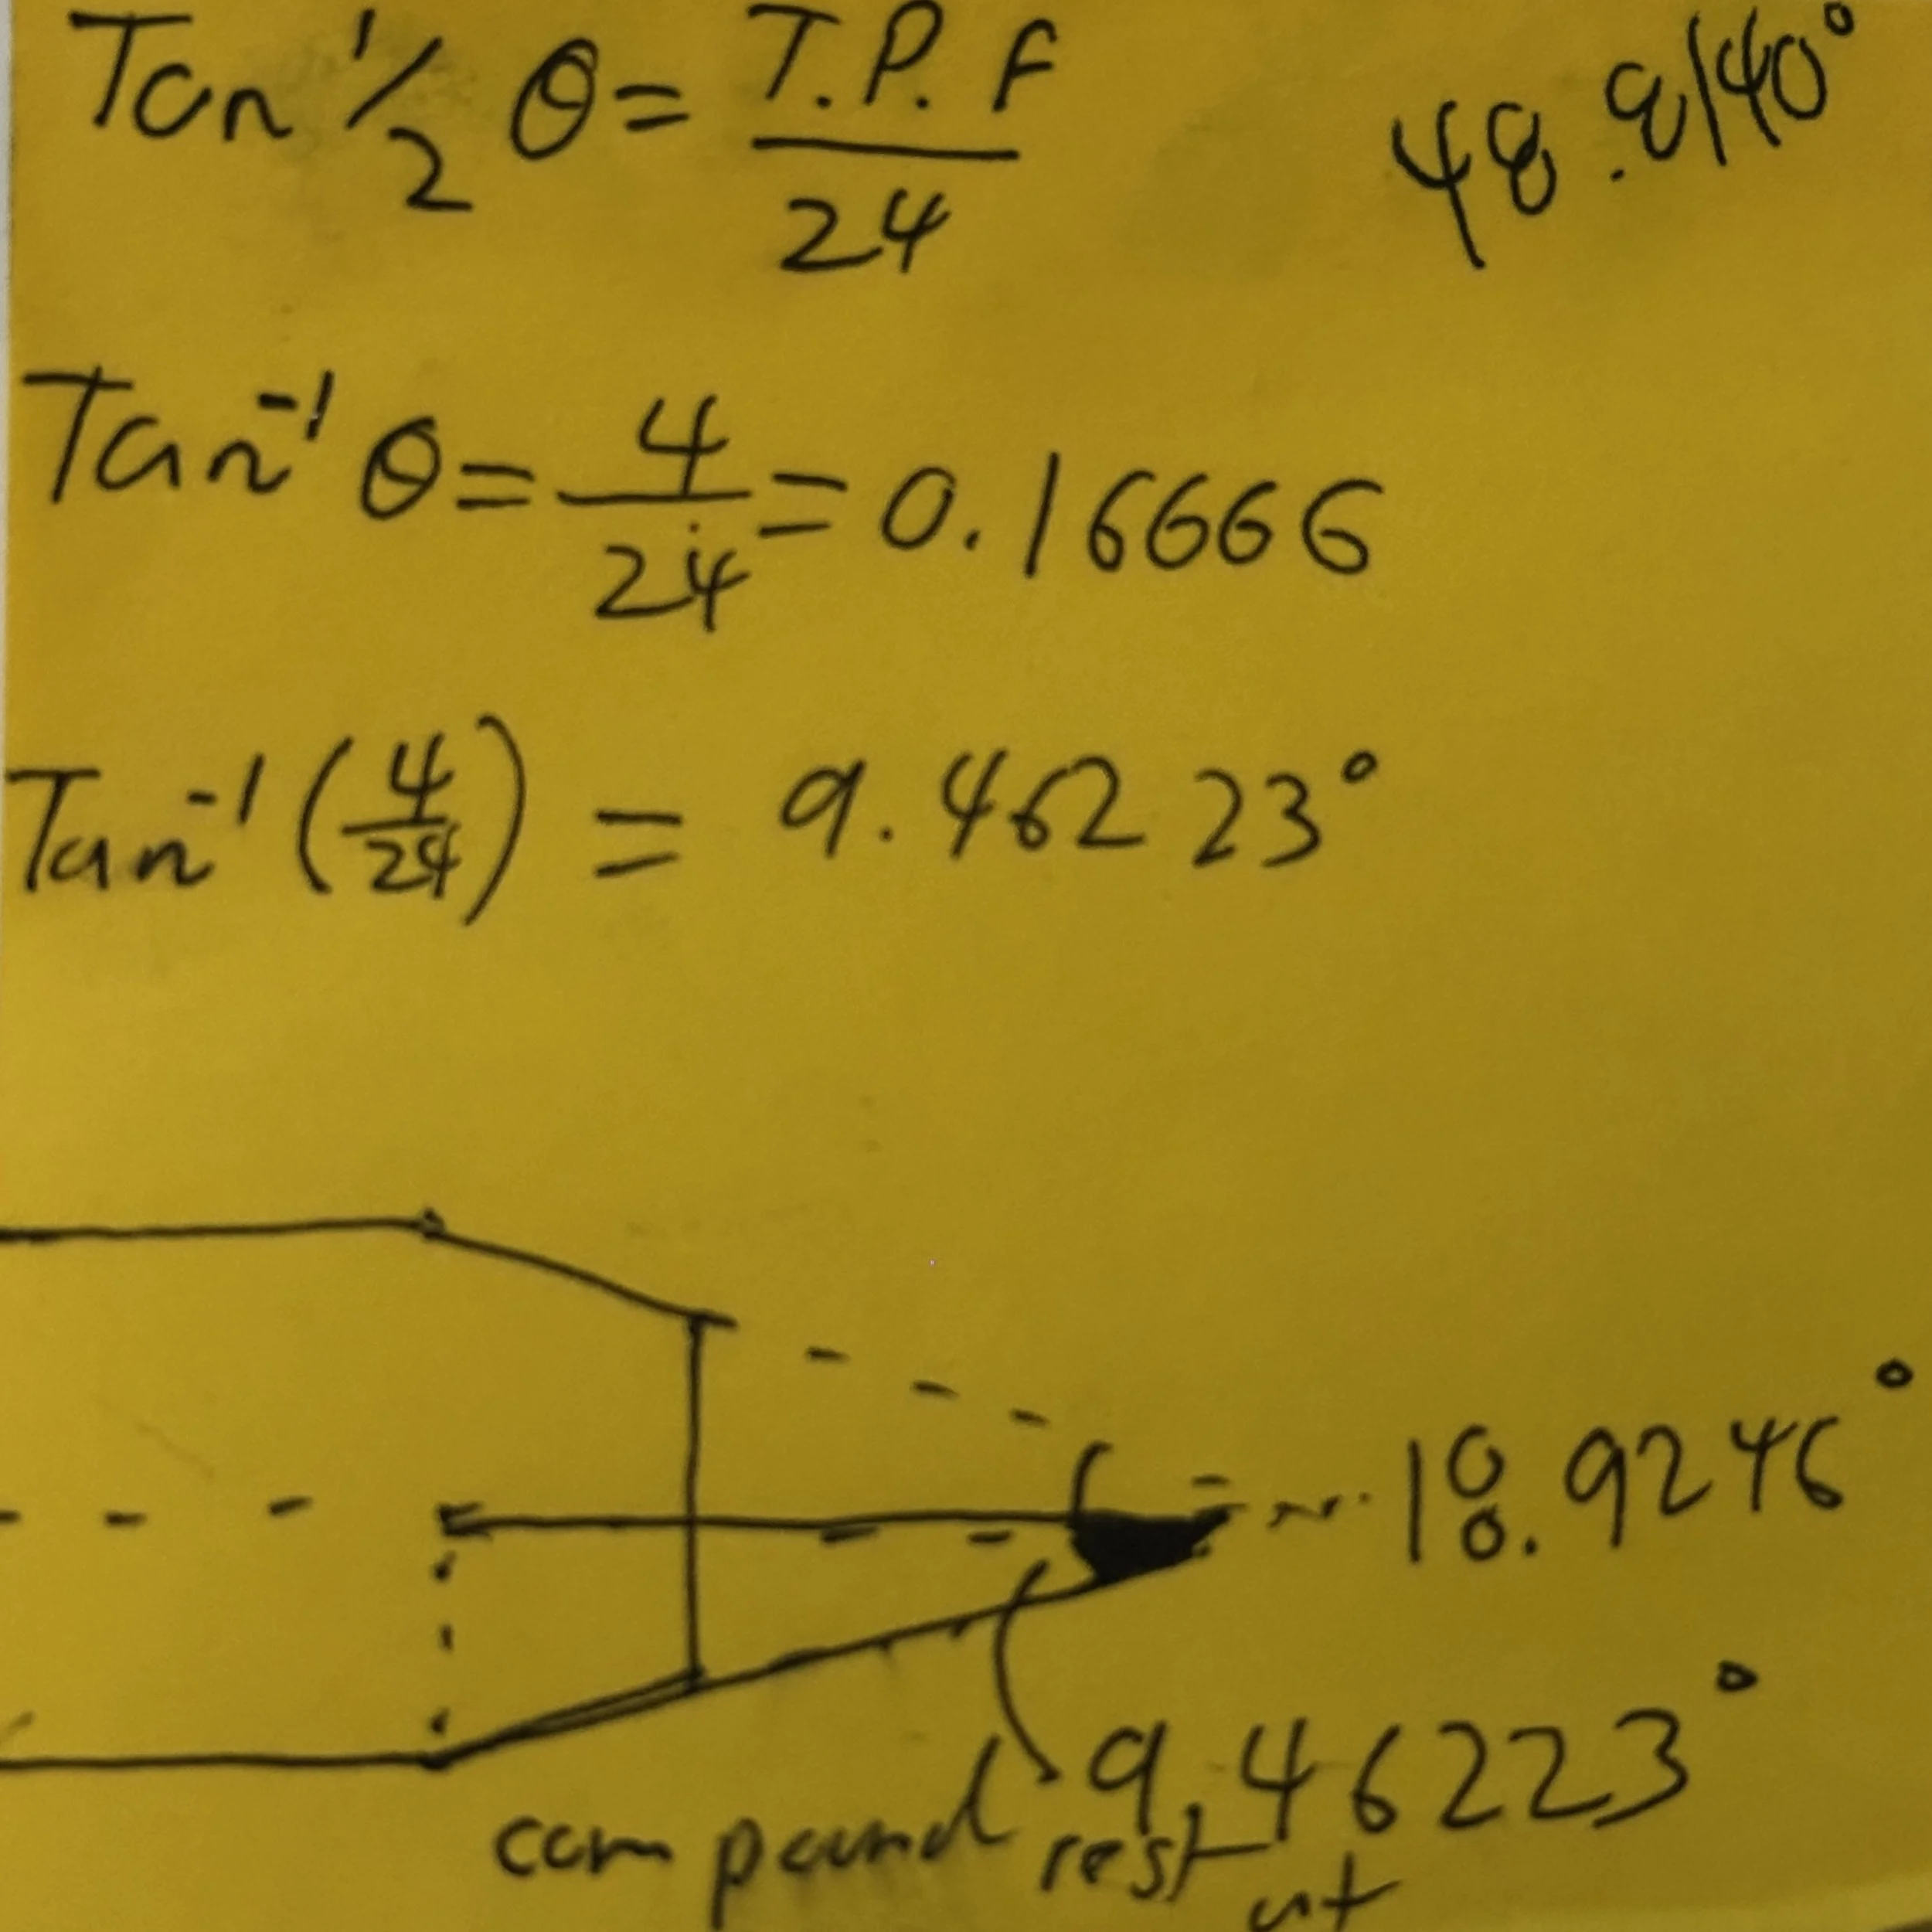 Tan 1/2 θ = T.P.F / 24
48.8140°
Tan⁻¹ θ = 4/24 = 0.16666
Tan⁻¹ (4/24) = 9.46223°
18.9246°
9.46223°
compound rest
at